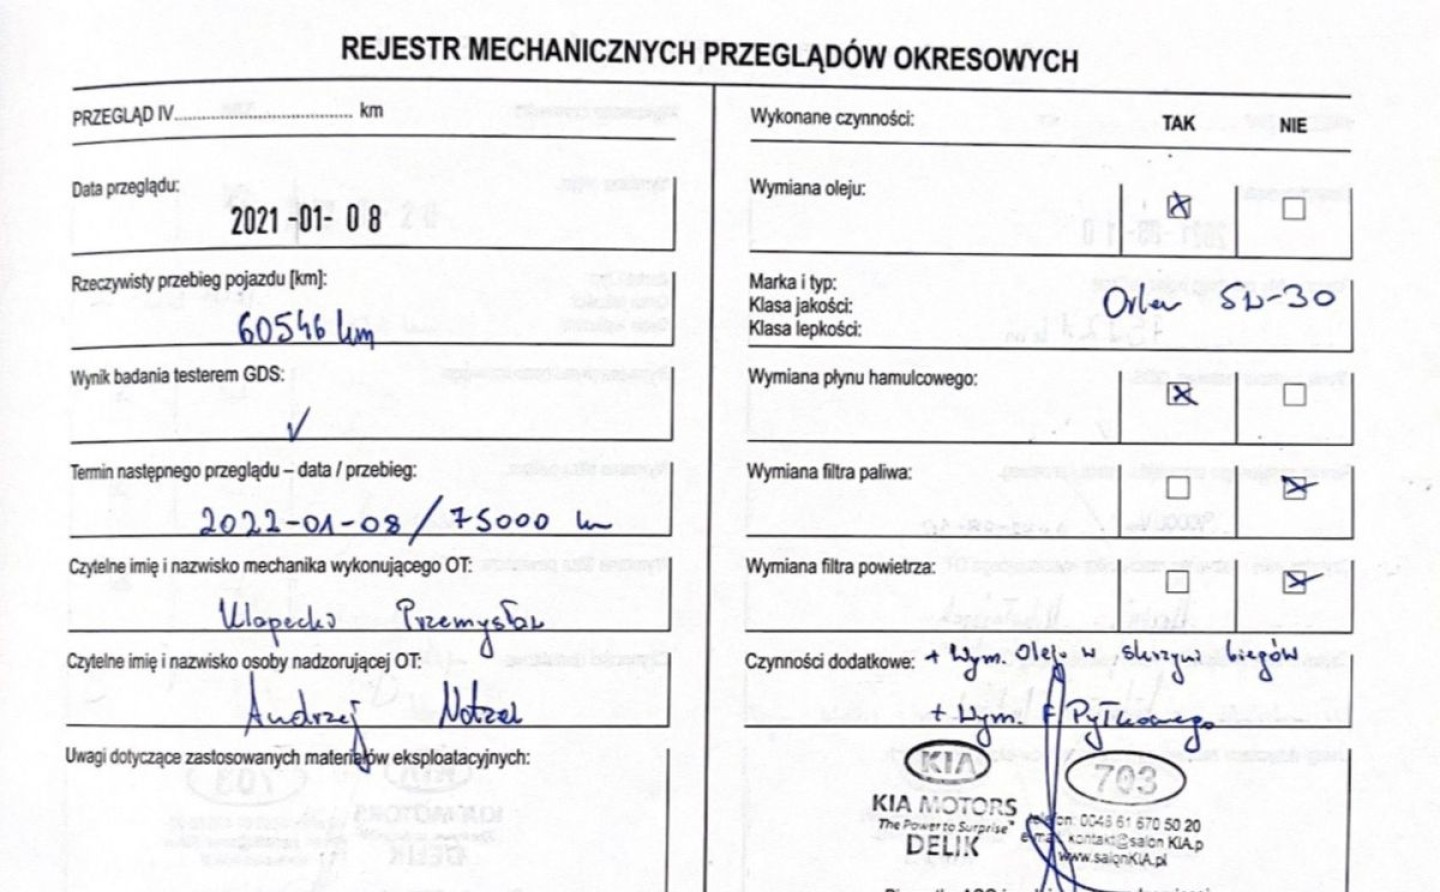 REJESTR MECHANICZNYCH PRZEGLĄDÓW OKRESOWYCH
PRZEGLĄD IV................................... km
Data przeglądu:
2021-01-08
Rzeczywisty przebieg pojazdu [km]:
60546 km
Wynik badania testerem GDS:
✓
Termin następnego przeglądu – data / przebieg:
2022-01-08 / 75000 km
Czytelne imię i nazwisko mechanika wykonującego OT:
Przemysław
Czytelne imię i nazwisko osoby nadzorującej OT:
Andrzej
Uwagi dotyczące zastosowanych materiałów eksploatacyjnych:
Wykonane czynności: TAK NIE
Wymiana oleju:
Marka i typ:
Klasa jakości:
Klasa lepkości:
Orlen 5W-30
Wymiana płynu hamulcowego:
Wymiana filtra paliwa:
Wymiana filtra powietrza:
Czynności dodatkowe: + Wym. Oleju w skrzyni biegów
+ Wym. F Pyłkowego
KIA 703
KIA MOTORS
The Power to Surprise™
DELIK
telefon: 0048 61 670 50 20
e-mail: kontakt@salon KIA.p
www.salonKIA.pl